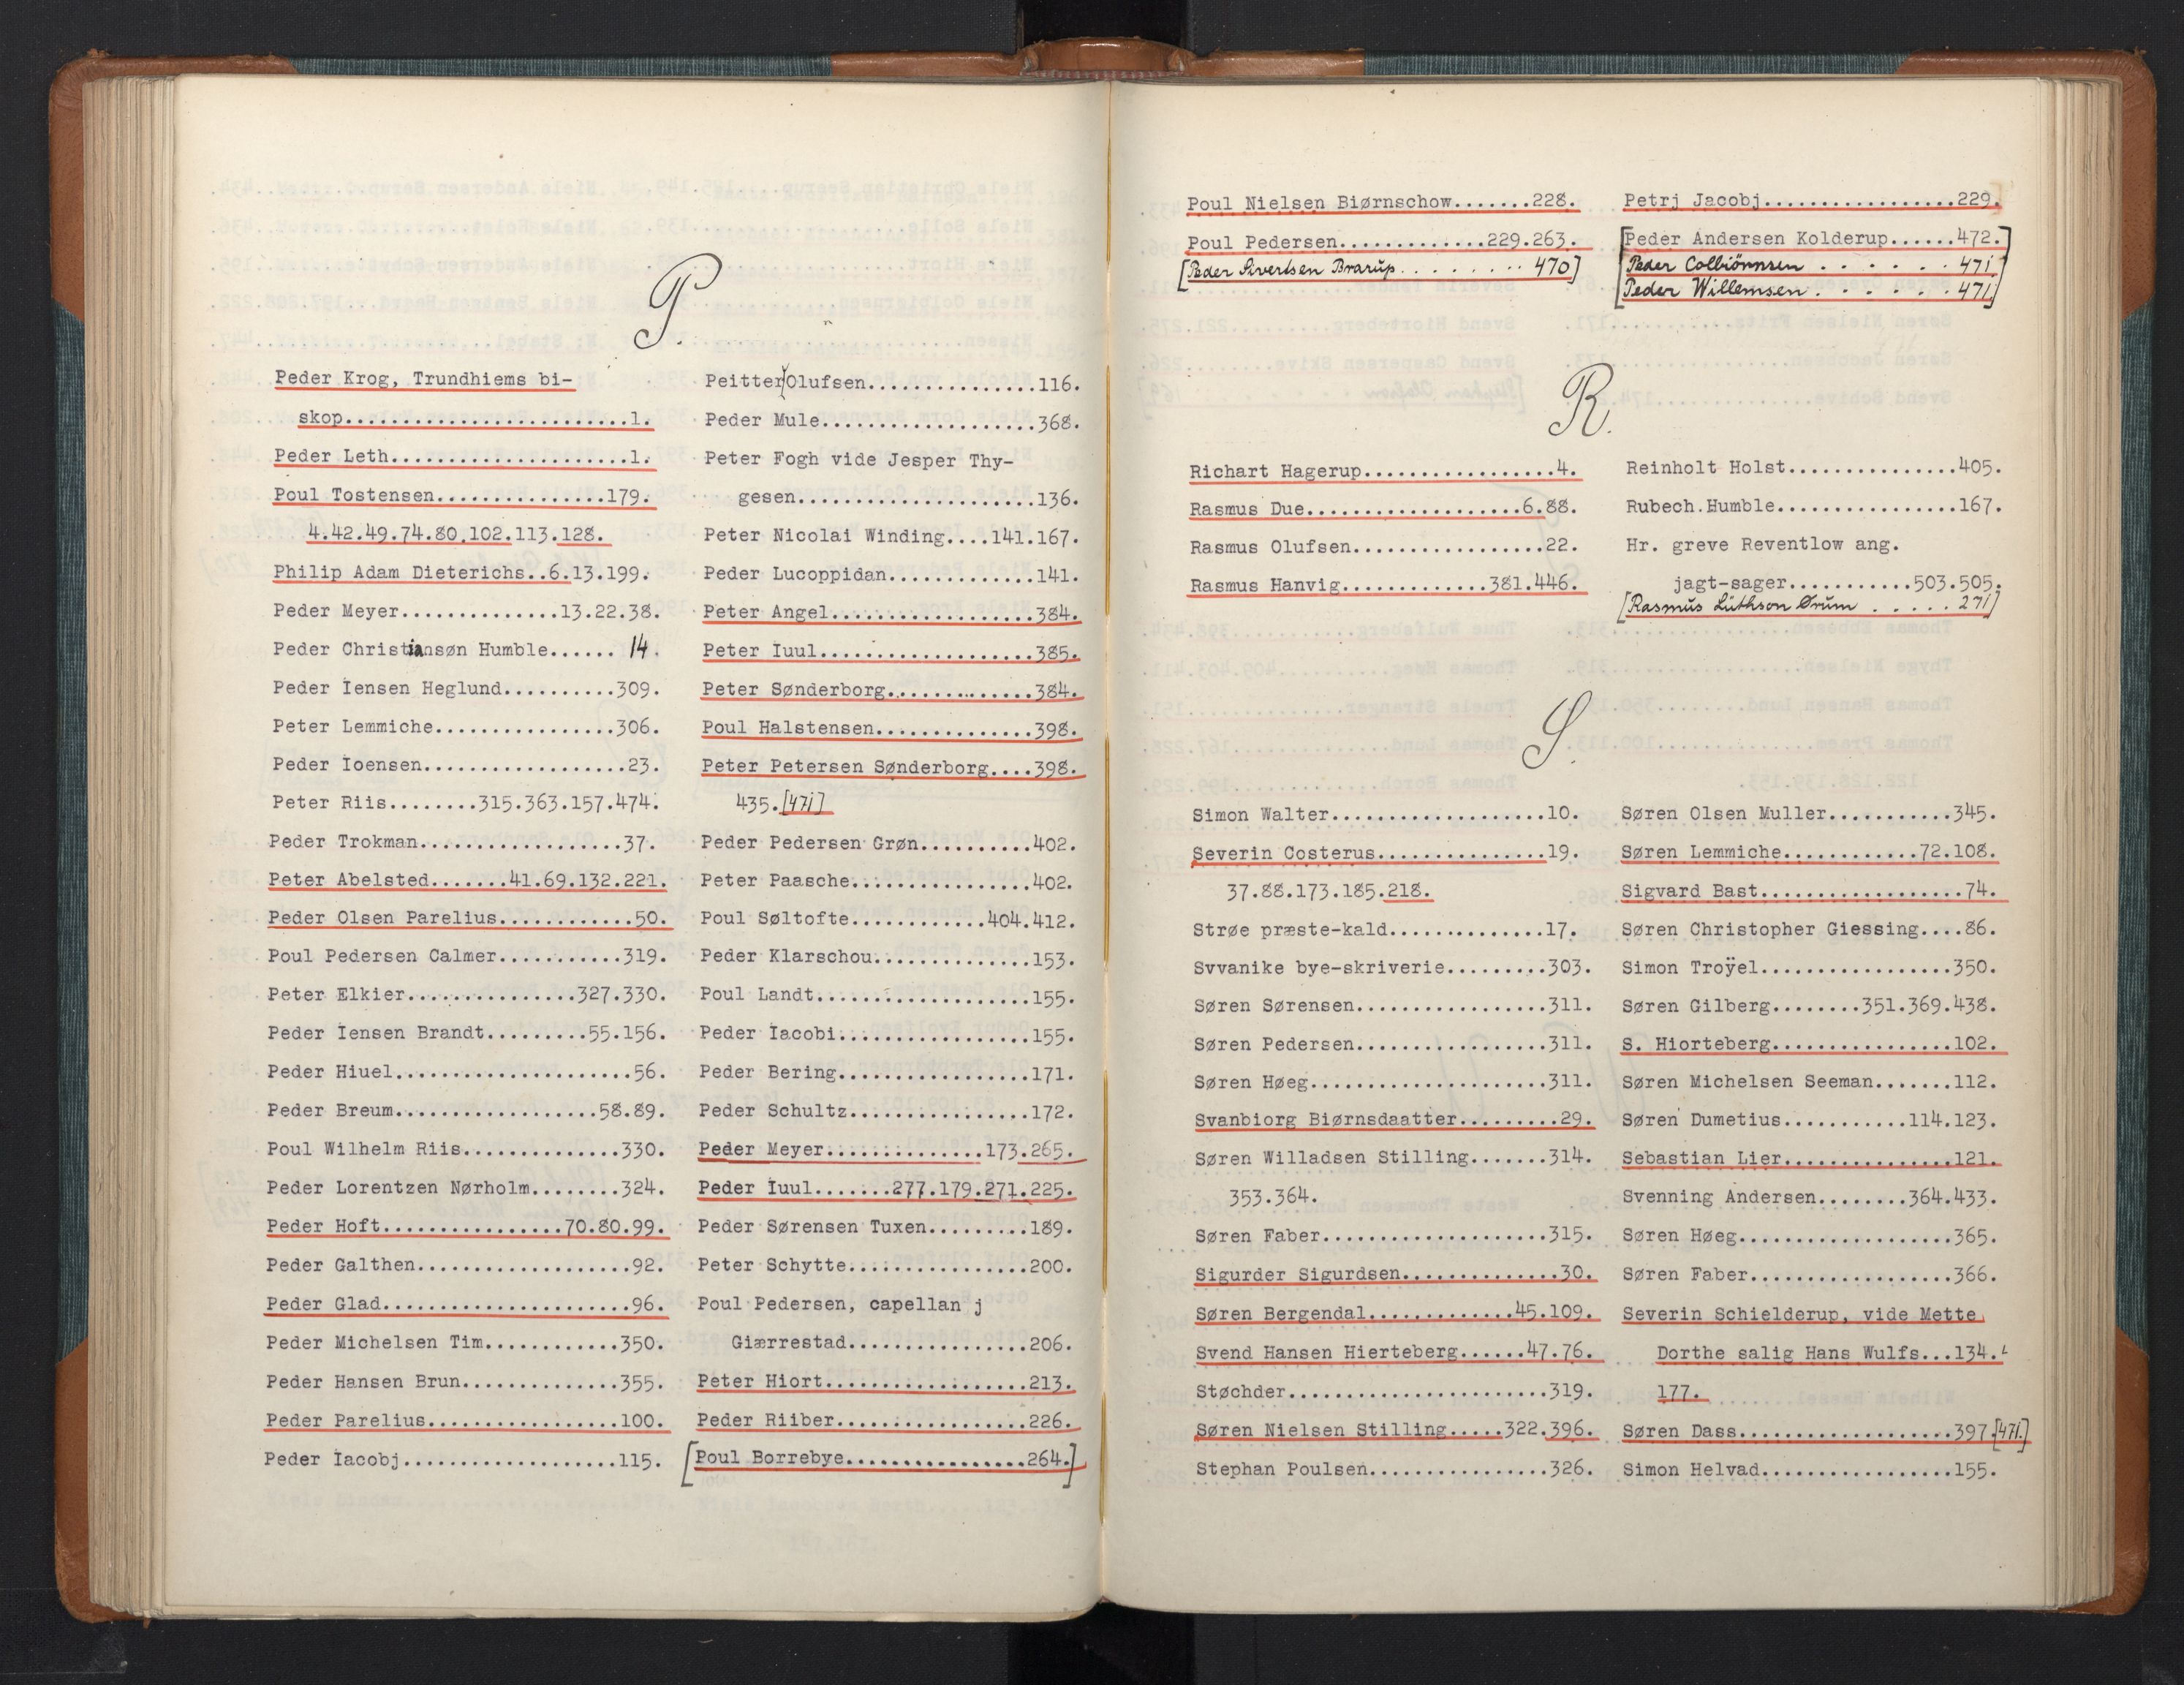 P.
Peder Krog, Trundhiems bi-
skop.........................1.
Peder Leth.....................1.
Poul Tostensen...............179.
4.42.49.74.80.102.113.128.
Philip Adam Dieterichs..6.13.199.
Peder Meyer..............13.22.38.
Peder Christiansøn Humble...... 14.
Peder Iensen Heglund..........309.
Peter Lemmiche................306.
Peder Ioensen..................23.
Peter Riis........315.363.157.474.
Peder Trokman..................37.
Peter Abelsted.......41.69.132.221.
Peder Olsen Parelius............50.
Poul Pedersen Calmer...........319.
Peter Elkier...............327.330.
Peder Iensen Brandt.........55.156.
Peder Hiuel.....................56.
Peder Breum..................58.89.
Poul Wilhelm Riis..............330.
Peder Lorentzen Nørholm........324.
Peder Hoft................70.80.99.
Peder Galthen...................92.
Peder Glad......................96.
Peder Michelsen Tim............350.
Peder Hansen Brun..............355.
Peder Parelius.................100.
Peder Iacobj...................115.
Peitter Olufsen...............116.
Peder Mule...................368.
Peter Fogh vide Jesper Thy-
gesen.....................136.
Peter Nicolai Winding....141.167.
Peder Lucoppidan.............141.
Peter Angel..................384.
Peter Iuul...................385.
Peter Sønderborg.............384.
Poul Halstensen..............398.
Peter Petersen Sønderborg....398.
435.[471]
Peder Pedersen Grøn..........402.
Peter Paasche................402.
Poul Søltofte............404.412.
Peder Klarschou..............153.
Poul Landt...................155.
Peder Iacobi.................155.
Peder Bering.................171.
Peder Schultz................172.
Peder Meyer..............173.265.
Peder Iuul.......277.179.271.225.
Peder Sørensen Tuxen.........189.
Peter Schytte................200.
Poul Pedersen, capellan j
Giærrestad................206.
Peter Hiort..................213.
Peder Riiber.................226.
[Poul Borrebye................264.]
Poul Nielsen Biørnschow.......228.
Poul Pedersen.............229.263.
[Peder Sivertsen Brarup........ 470]
Petrj Jacobj.................229.
[Peder Andersen Kolderup......472.]
Peder Colbiönnsen ...... 471
Peder Willemsen ...... 471]
R.
Richart Hagerup.................4.
Rasmus Due...................6.88.
Rasmus Olufsen.................22.
Rasmus Hanvig.............381.446.
Reinholt Holst...............405.
Rubech.Humble................167.
Hr. greve Reventlow ang.
jagt-sager...........503.505.
[Rasmus Lüthson Ørum ..... 271]
S.
Simon Walter...................10.
Severin Costerus...............19.
37.88.173.185.218.
Strøe præste-kald..............17.
Svvanike bye-skriverie.........303.
Søren Sørensen.................311.
Søren Pedersen.................311.
Søren Høeg.....................311.
Svanbiorg Biørnsdaatter.........29.
Søren Willadsen Stilling.......314.
353.364.
Søren Faber....................315.
Sigurder Sigurdsen..............30.
Søren Bergendal.............45.109.
Svend Hansen Hierteberg......47.76.
Støchder.......................319.
Søren Nielsen Stilling.....322.396.
Stephan Poulsen................326.
Søren Olsen Muller...........345.
Søren Lemmiche............72.108.
Sigvard Bast..................74.
Søren Christopher Giessing....86.
Simon Troÿel.................350.
Søren Gilberg........351.369.438.
S. Hiorteberg................102.
Søren Michelsen Seeman.......112.
Søren Dumetius...........114.123.
Sebastian Lier...............121.
Svenning Andersen........364.433.
Søren Høeg...................365.
Søren Faber..................366.
Severin Schielderup, vide Mette
Dorthe salig Hans Wulfs...134.
177.
Søren Dass...................397.[471.]
Simon Helvad.................155.